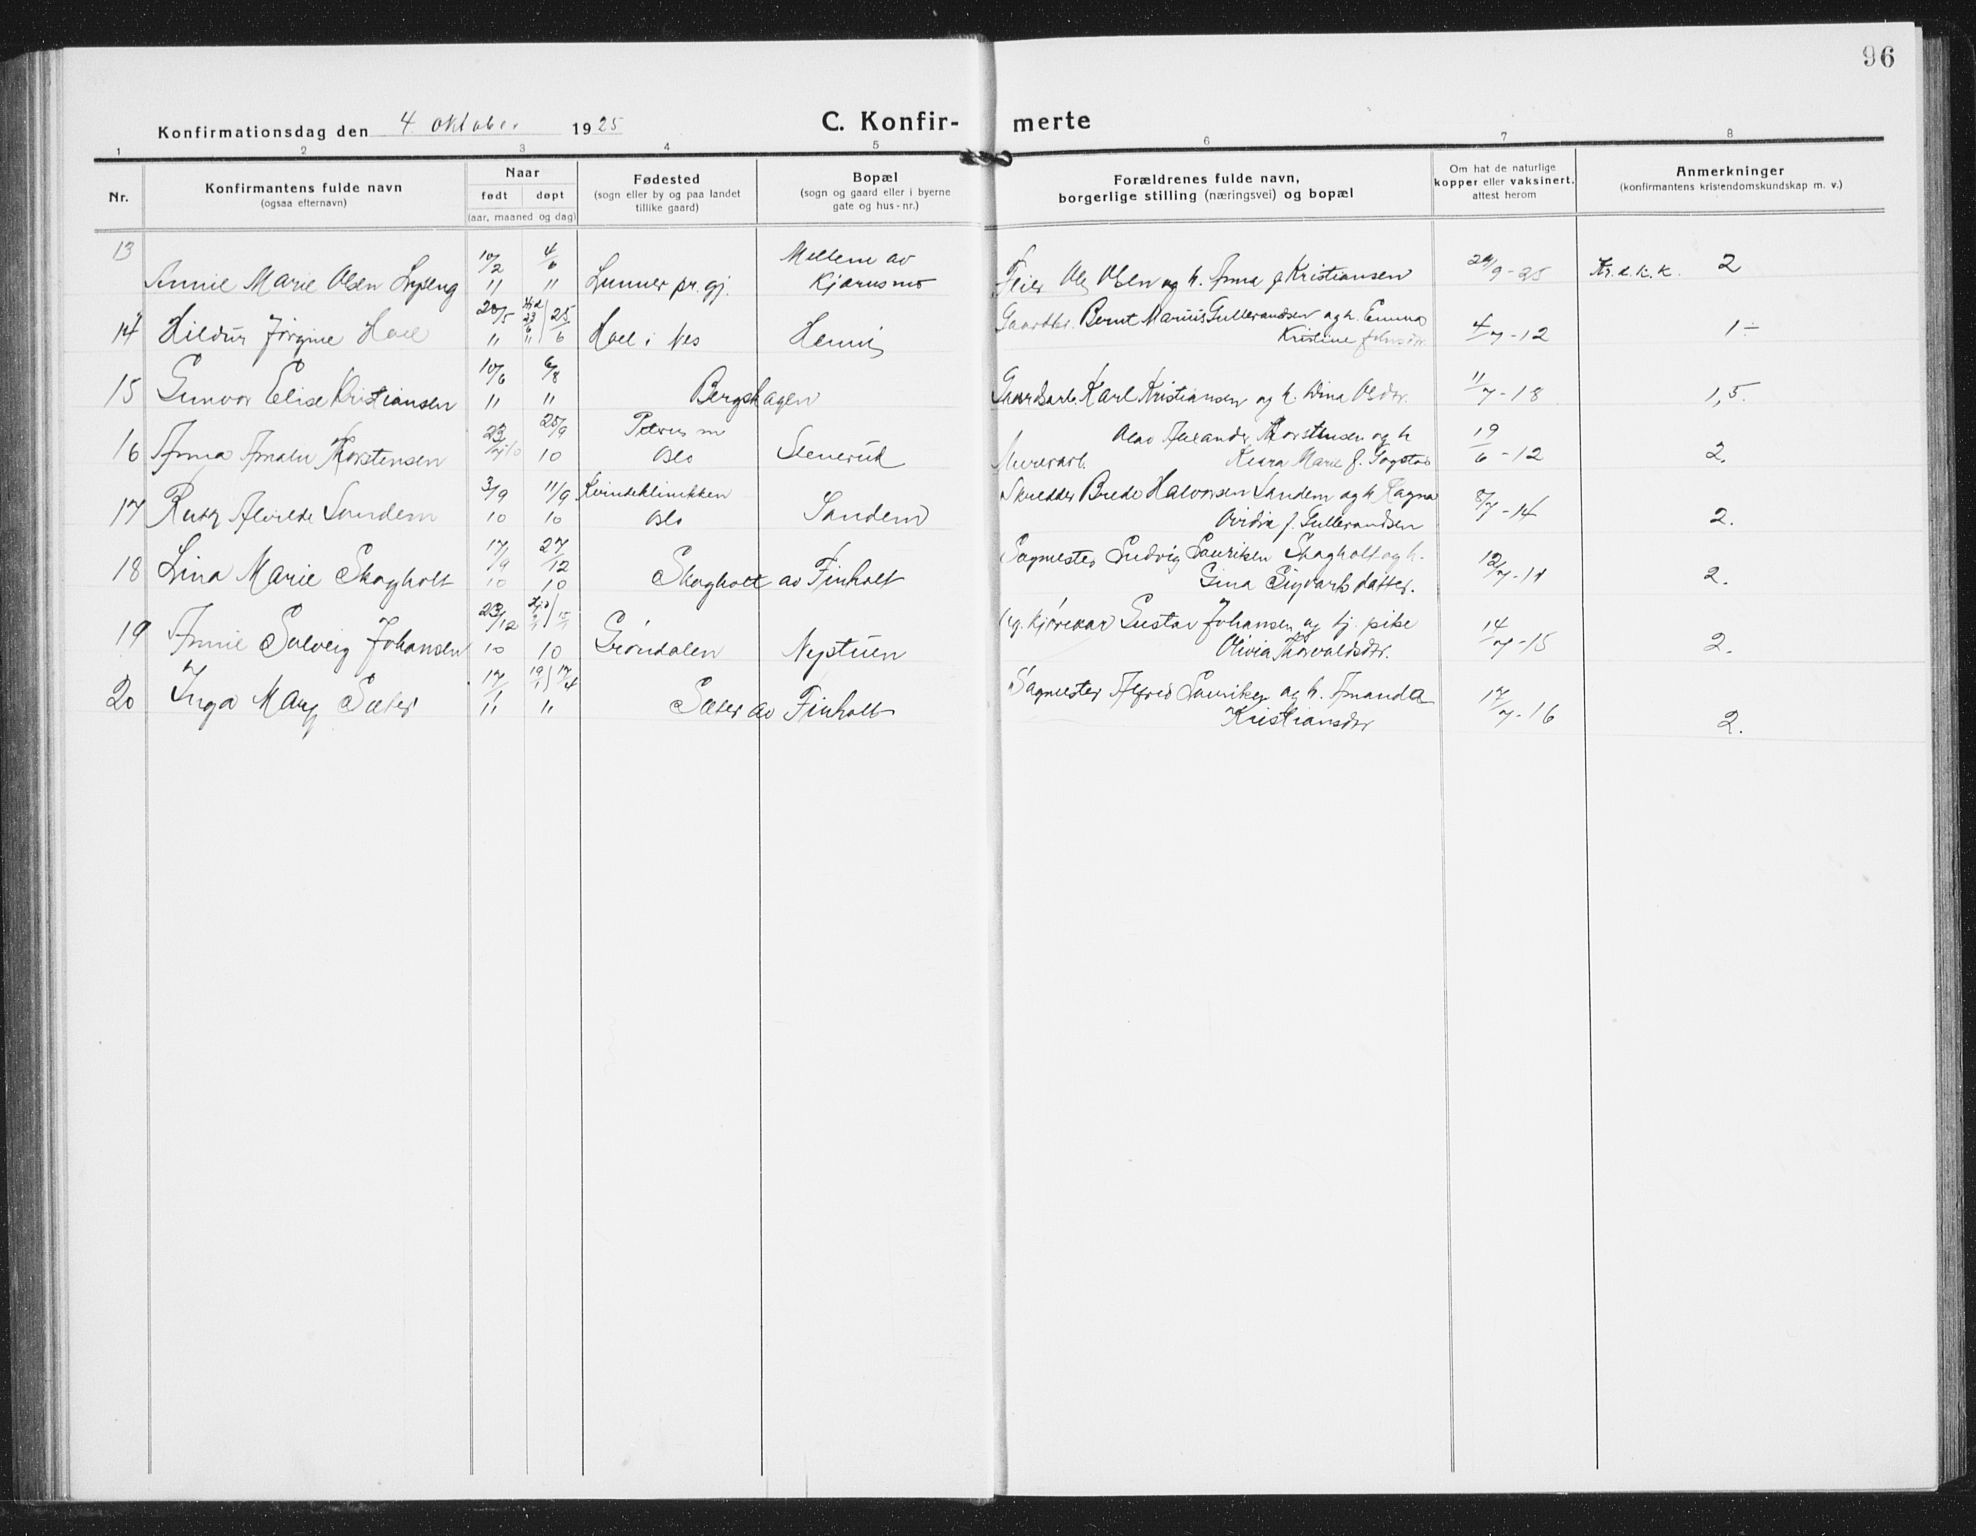 96
Konfirmationsdag den 4 oktober 1925
C. Konfir- merte
1 2 3 4 5 6 7 8
Nr.
Konfirmantens fulde navn
(ogsaa efternavn)
Naar
født døpt
(aar, maaned og dag)
Fødested
(sogn eller by og paa landet
tillike gaard)
Bopæl
(sogn og gaard eller i byerne
gate og hus-nr.)
Forældrenes fulde navn,
borgerlige stilling (næringsvei) og bopæl
Om hat de naturlige
kopper eller vaksinert,
attest herom
Anmerkninger
(konfirmantens kristendomskundskap m. v.)
13 10/2 4/6 Mellem av
Annie Marie Olsen Lyseng 11 11 Lunner pr.gj. Kjørusmo Feier Ole Olsen og h. Anna f Kristiansen 29/9-25 Kr.d.k.k. 2
20/5 25/6 Gaardbr. Bernt Marius Gulbrandsen og h. Emma
14 Hildur Jørgine Hoel 11 Hoel i Nes Henni Kristine Johnsdr. 4/7-12 1÷
10/6 6/8
15 Gunvor Elise Kristiansen 11 11 Bergshagen Gaardsarb. Karl Kristiansen og h. Dina Olsdr. 11/7-18 1,5.
23 25/9 Petrus m Olav Alexander Thorstensen og h
16 Anna Amalie Thorstensen 10 Oslo Stenerud Murerarb. Klara Marie f. Sogstad 19/6-12 2.
3/9 11/9 Kvindeklinikken Skredder Brede Halvorsen Sandem og h Ragna
17 Ruth Alvilde Sandem 10 10 Oslo Sandem Ovidia f. Gulbrandsen 8/7-14 2.
17/9 27/12 Sagmester Ludvig Lauritsen Skogholt og h.
18 Lina Marie Skogholt 10 10 Skogholt av Finholt Gina Sigvartsdatter. 12/7-11 2.
23/12 Ug. kjørekar Gustav Johansen og tj. pike
19 Annie Solveig Johansen 10 10 Grøndalen Nystuen Olivia Thorvaldsdr. 14/7-15 2.
17/1 19/1 17/4 Sagmester Alfred Lauritsen og h. Amanda
20 Inga Mary Sæter 11 11 Sæter av Finholt Kristiansdr 17/7-16 2.